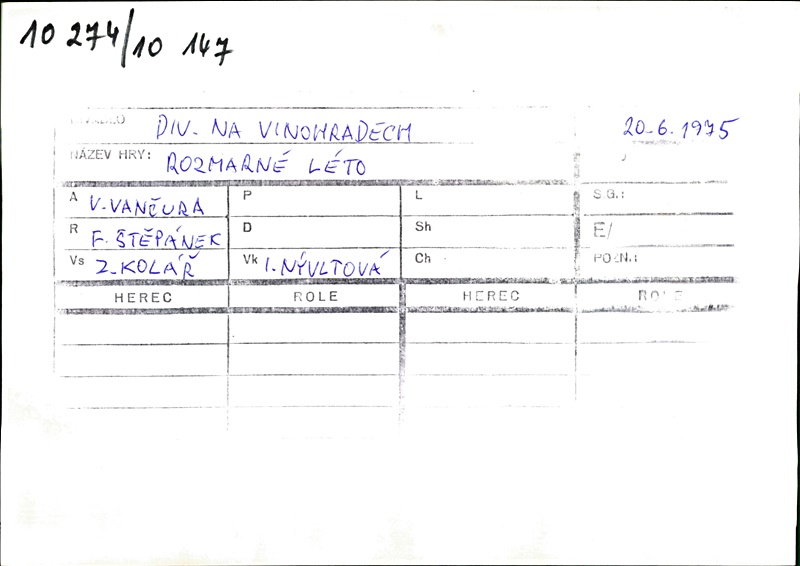 10 274/10 147
DIVADLO DIV. NA VINOHRADECH 20-6.1975
NÁZEV HRY: ROZMARNÉ LÉTO
A V. VANČURA P L S G.:
R F. ŠTĚPÁNEK D Sh E/
Vs Z. KOLÁŘ Vk I. NÝVLTOVÁ Ch POZN.:
HEREC ROLE HEREC ROLE